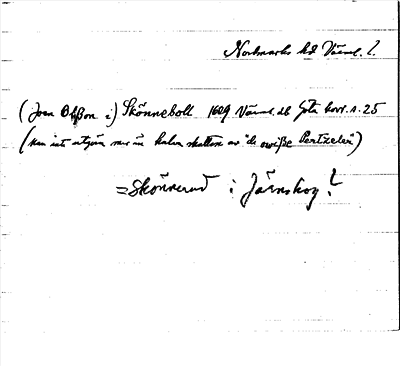 Nordmarks hd Värml. ?
(Joen Olsson i) Skönneboll 1609 Värml. hdl Göta korr. s. 25
(kan inte utgöra mer än halva skatten av "de owiße Pertzeler")
= Skönnerud i Järnskog ?